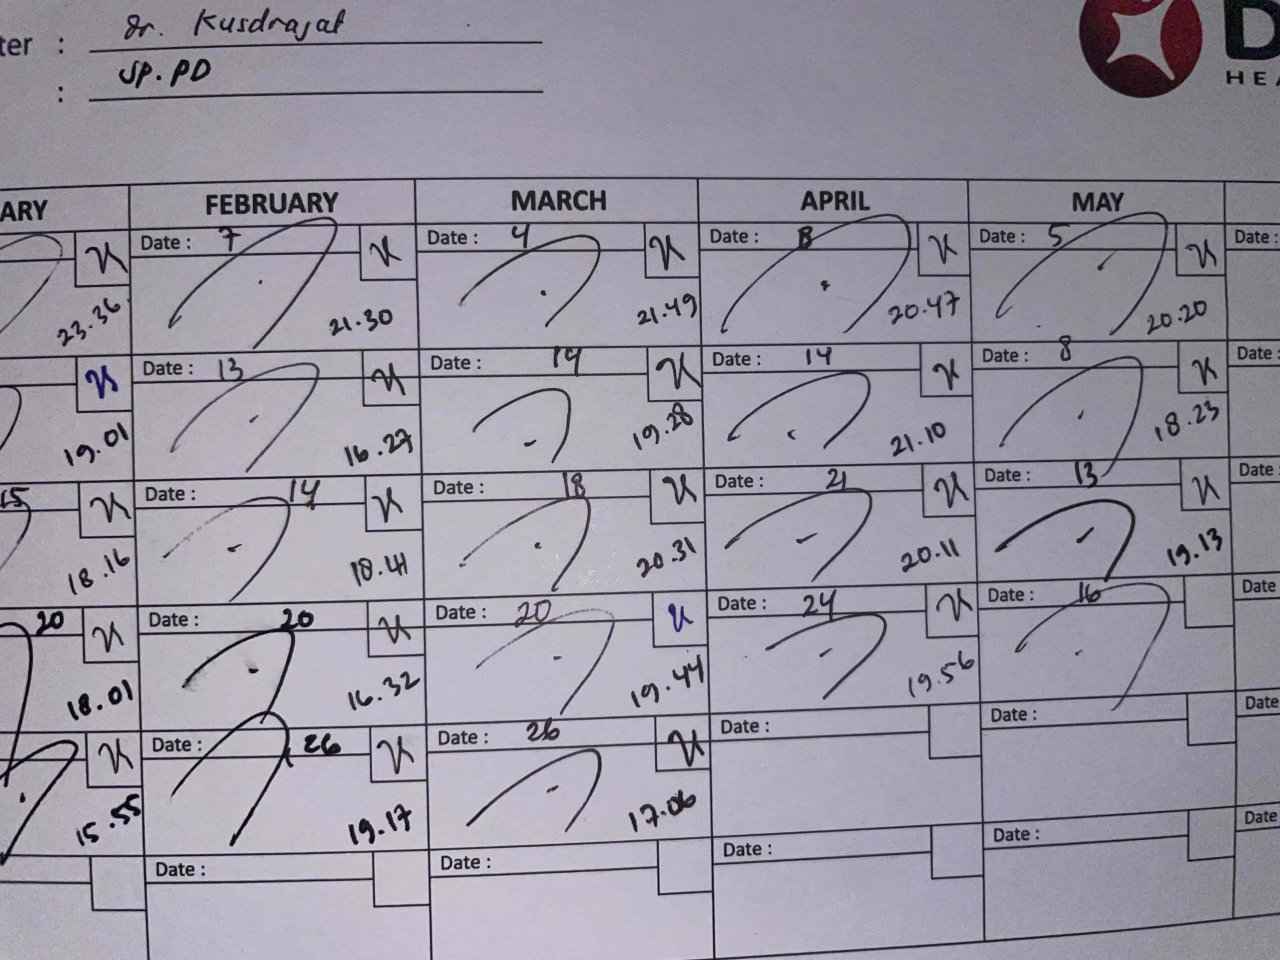 ter : dr. Kusdrajat
: SP.PD
D
HEA
ARY FEBRUARY MARCH APRIL MAY
Date : 7 Date : 4 Date : 8 Date : 5 Date :
23.36 21.30 21.49 20.47 20.20
Date : 13 Date : 14 Date : 14 Date : 8 Date :
19.01 16.27 19.28 21.10 18.23
15 Date : 14 Date : 18 Date : 21 Date : 13 Date :
18.16 18.41 20.31 20.11 19.13
20 Date : 20 Date : 20 Date : 24 Date : 16 Date
18.01 16.32 19.44 19.56
Date : 26 Date : 26 Date : Date : Date
15.55 19.17 17.06
Date : Date : Date : Date : Date